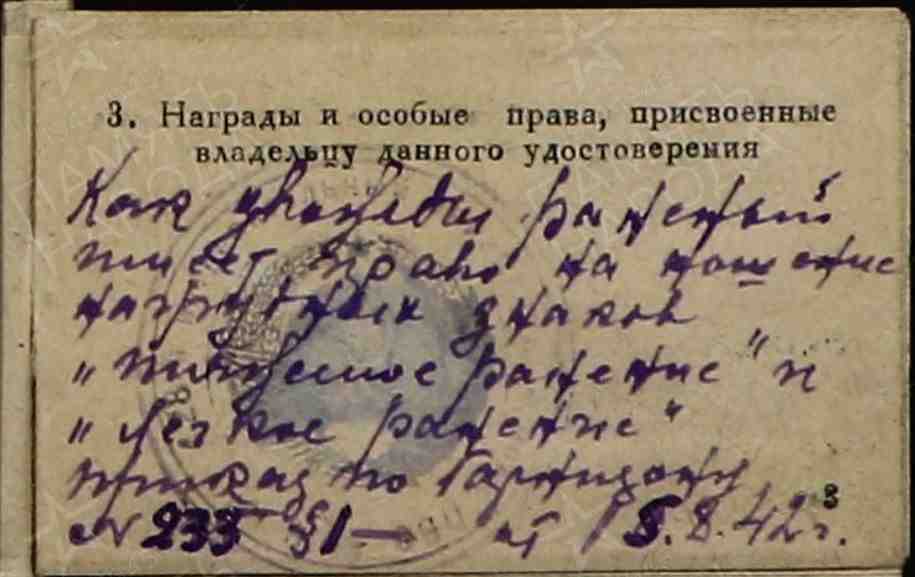 3. Награды и особые права, присвоенные
владельцу данного удостоверения
Как дважды раненый
имеет право на ношение
нагрудных знаков
„тяжелое ранение" и
„Легкое ранение"
приказ по Гарнизону
N 233 §1 — от 15.8.42 г.